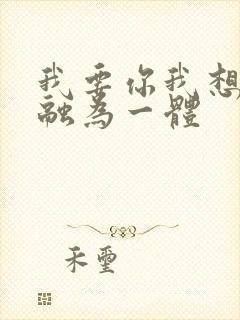 我要你我想
融為一體
禾璽